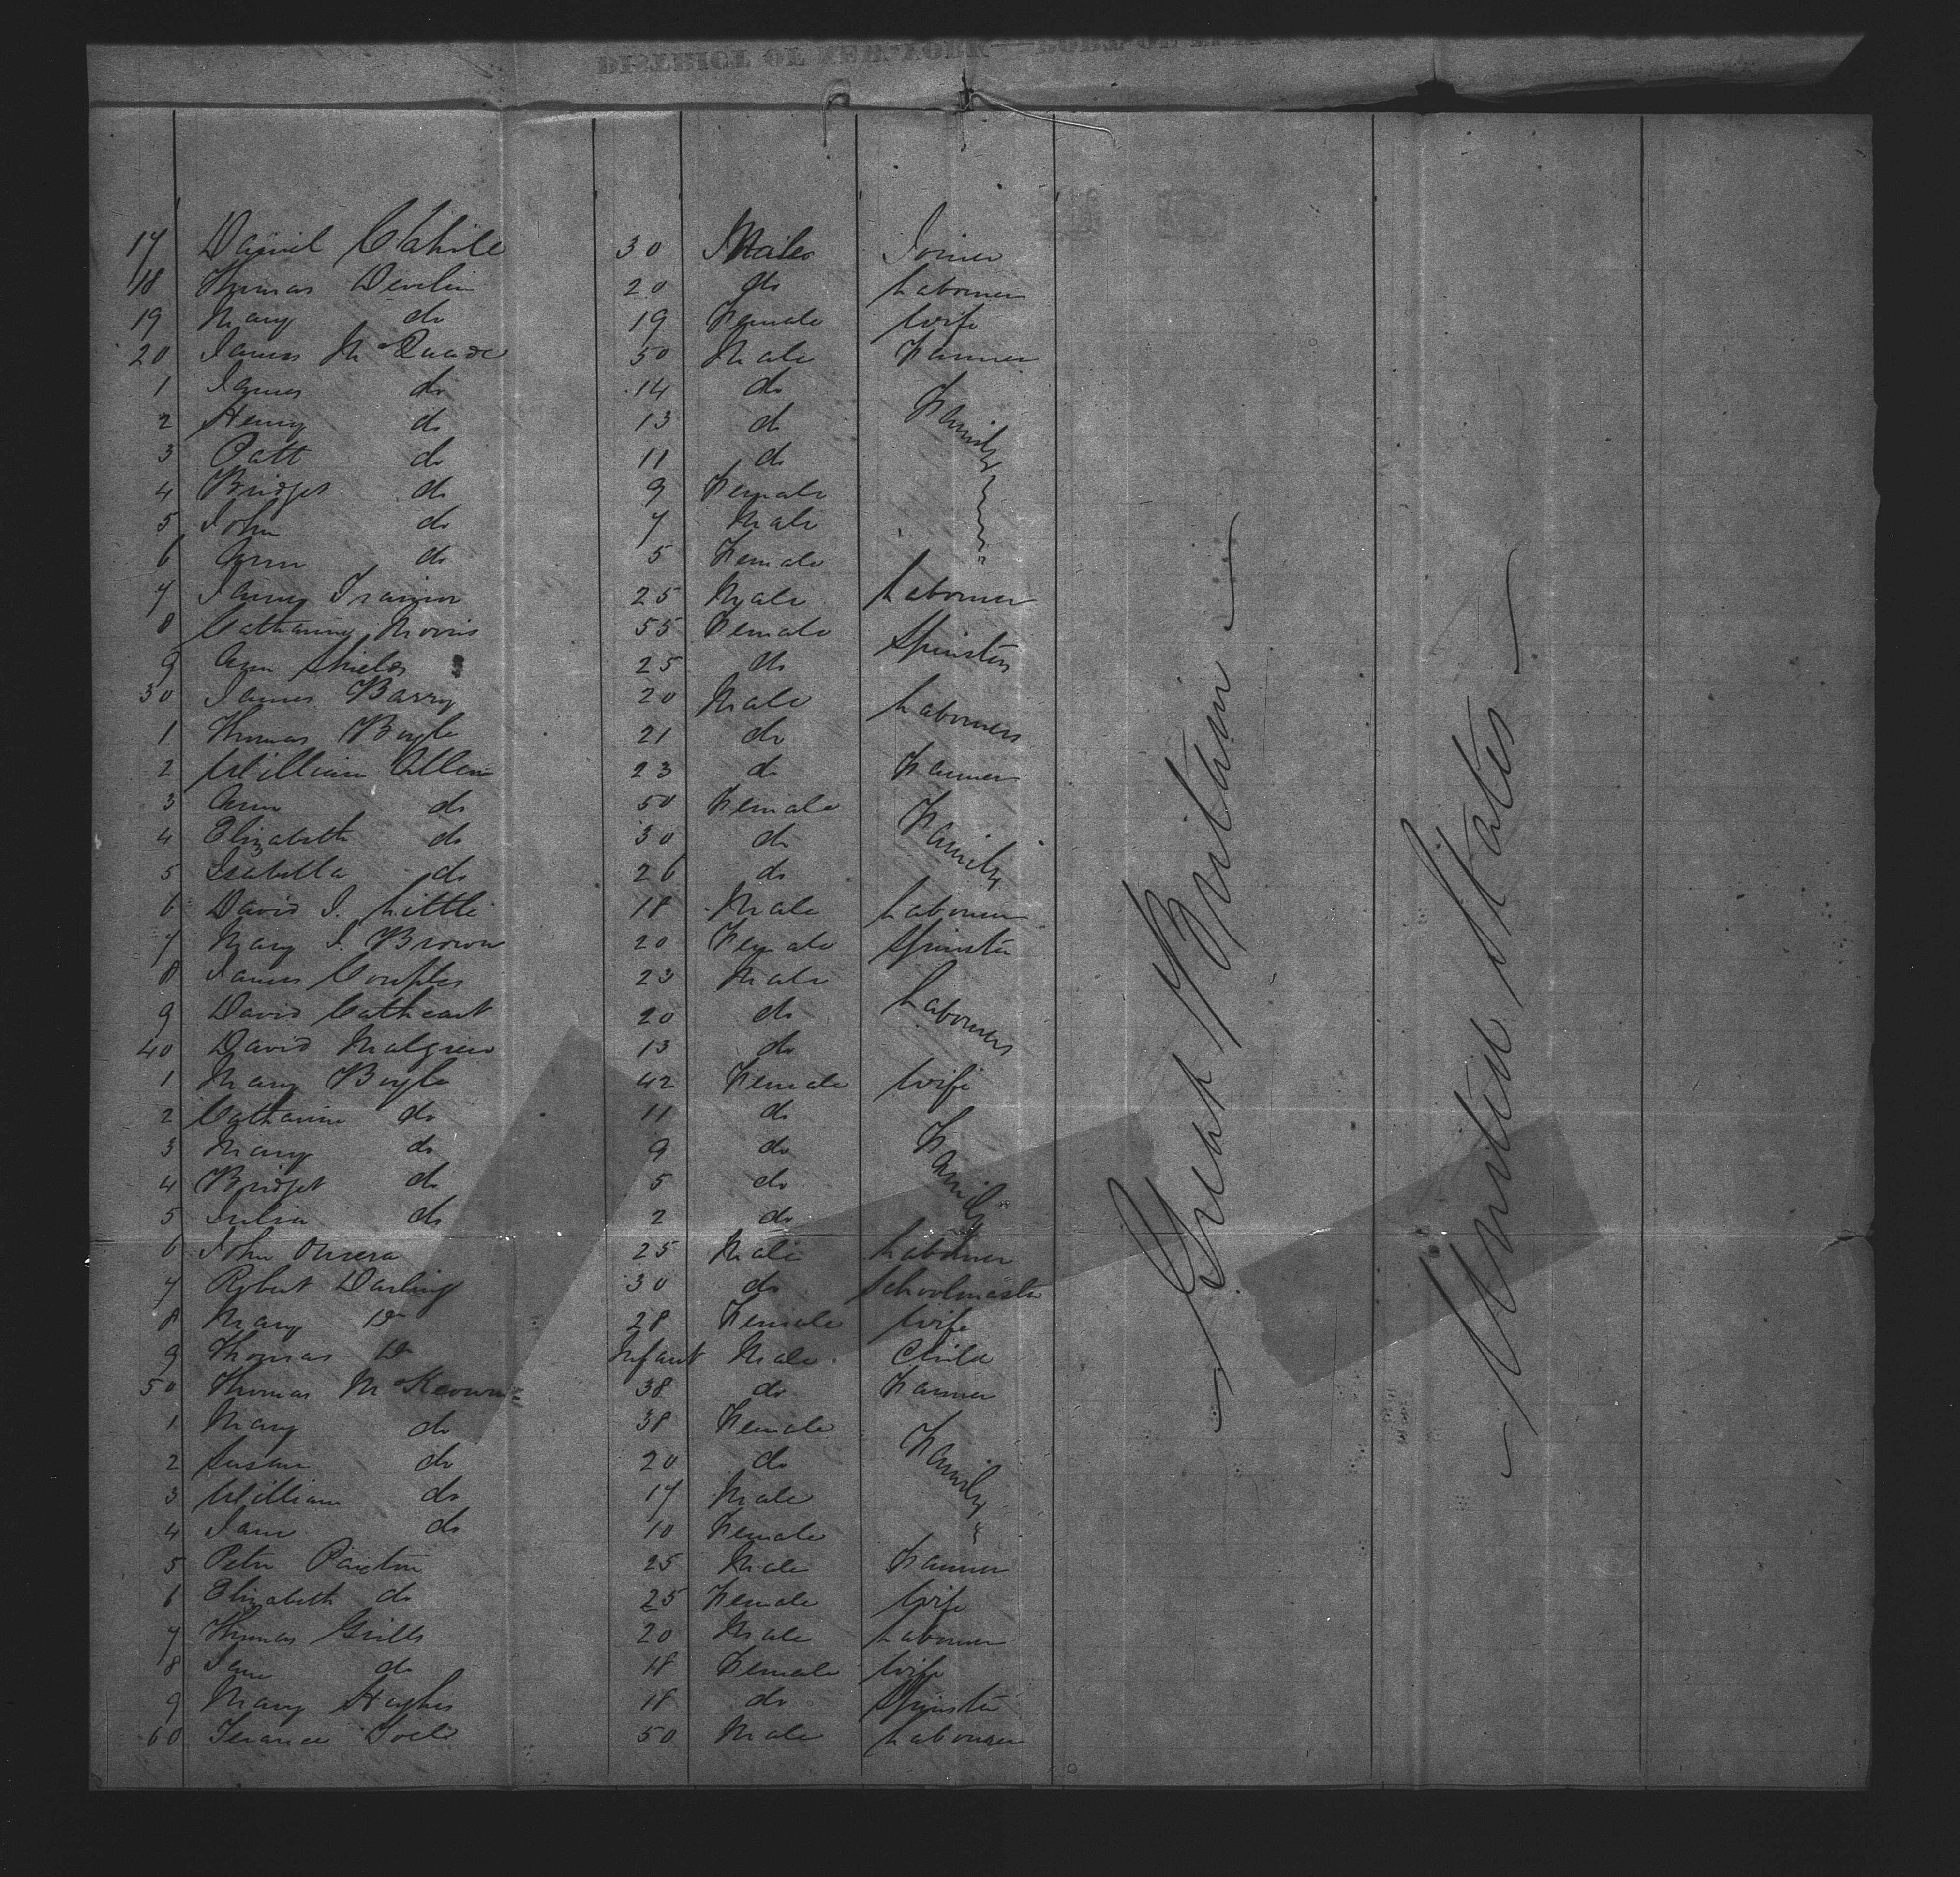 17 Daniel Cahill 30 Male Joiner
18 Thomas Devlin 20 do Labourer
19 Mary do 19 Female Wife
20 James McQuade 50 Male Farmer
1 James do 14 do Family
2 Henry do 13 do
3 Patt do 11 do
4 Bridget do 9 Female
5 John do 7 Male
6 Ann do 5 Female
7 James Trainor 25 Male Labourer
8 Catharine Morris 55 Female Spinsters
9 Ann Shields 25 do
30 James Barry 20 Male Labourers
1 Thomas Boyle 21 do
2 William Allen 23 do Farmer
3 Ann do 50 Female Family
4 Elizabeth do 30 do
5 Isabella do 26 do
6 David J. Little 18 Male Labourer
7 Mary J. Brown 20 Female Spinster
8 James 23 Male Labourers
9 David Cathcart 20 do
40 David Malgrew 13 do
1 Mary Boyle 42 Female Wife
2 Catharine do 11 do Family
3 Mary do 9 do
4 Bridget do 5 do
5 Julia do 2 do
6 John 25 Male Labourer
7 Robert Darling 30 do Schoolmaster
8 Mary Do 28 Female Wife
9 Thomas Do Infant Male Child
50 Thomas McKeown 38 do Farmer
1 Mary do 38 Female Family
2 Susan do 20 do
3 William do 17 Male
4 Jane do 10 Female
5 Peter 25 Male Farmer
6 Elizabeth do 25 Female Wife
7 Thomas Grills 20 Male Labourer
8 Jane do 18 Female Wife
9 Mary Hughes 18 do Spinster
60 Terance 50 Male Labourer
Great Britain
United States